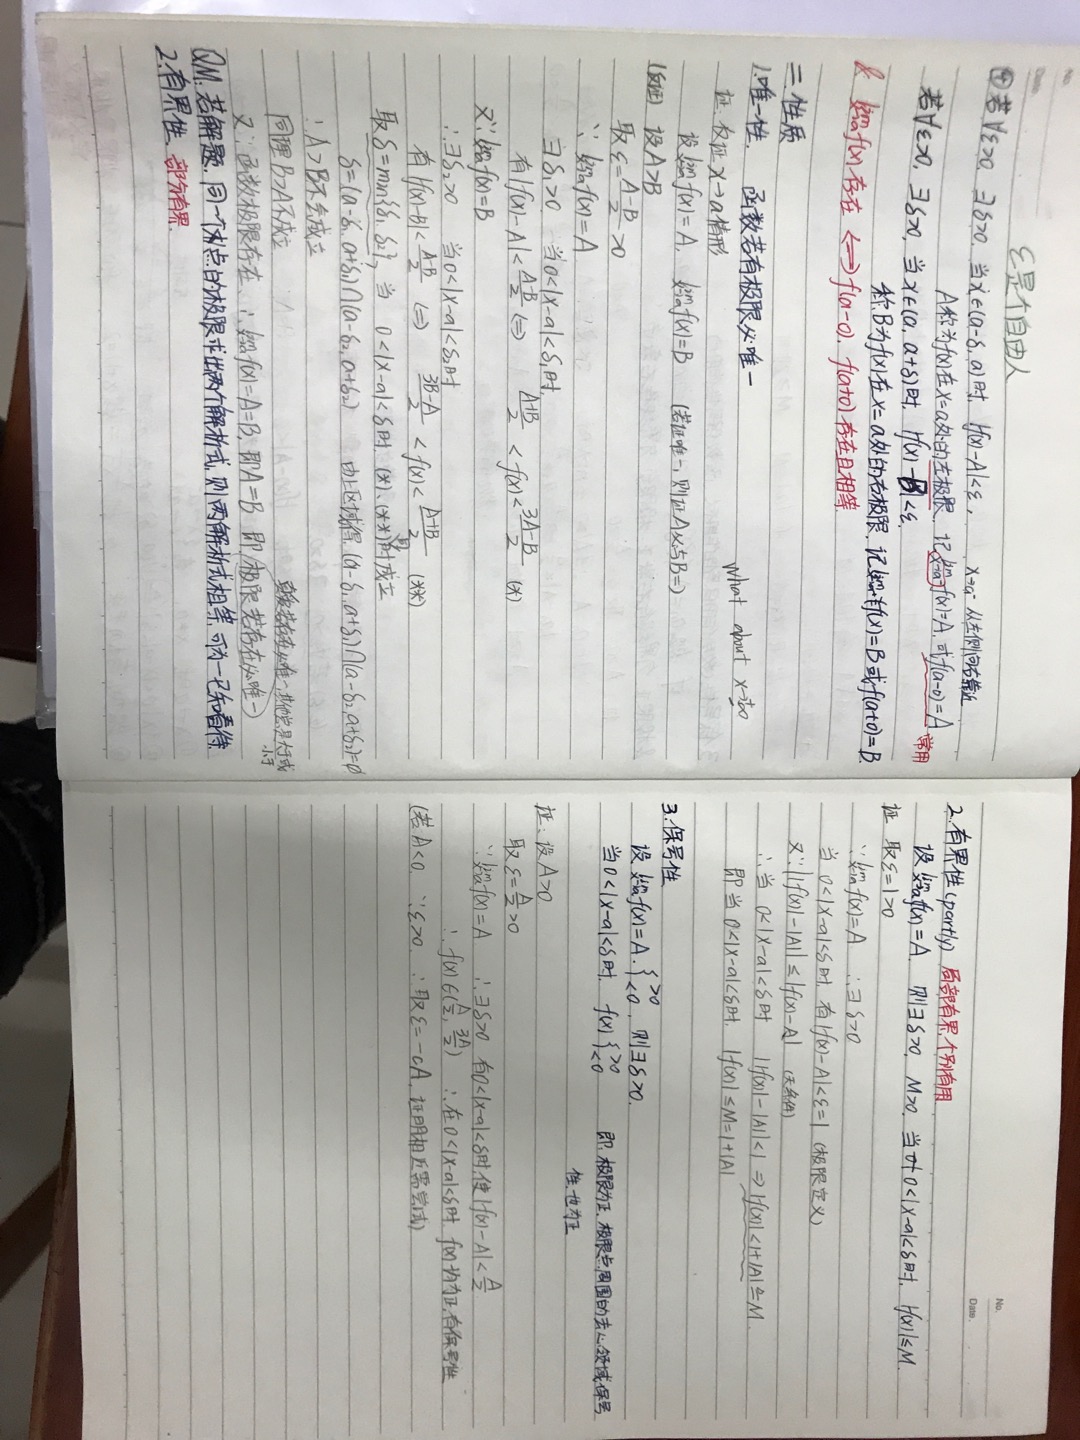 No.
Date.
ε是个自由人
④若∀ε>0, ∃δ>0, 当x∈(a-δ, a)时, |f(x)-A|<ε, x→a⁻ 从左侧向右靠近
A称为f(x)在x=a处的左极限, 记lim x→a⁻ f(x)=A, 或f(a-0)=A
常用
若∀ε>0, ∃δ>0, 当x∈(a, a+δ)时, |f(x)-B|<ε
称B为f(x)在x=a处的右极限, 记lim x→a⁺ f(x)=B或f(a+0)=B
lim x→a f(x)存在 ⟺ f(a-0), f(a+0)存在且相等
二.性质
1.唯一性. 函数若有极限必唯一
证. 仅证x→a情形 what about x→∞
设lim x→a f(x)=A, lim x→a f(x)=B (若证唯一, 则证A必与B=)
(反证) 设A>B
取ε=(A-B)/2>0
∵ lim x→a f(x)=A
∃δ₁>0 当0<|x-a|<δ₁时,
有|f(x)-A|<(A-B)/2 ⟺ (A+B)/2<f(x)<(3A-B)/2 (*)
又∵lim x→a f(x)=B
∴∃δ₂>0 当0<|x-a|<δ₂时
有|f(x)-B|<(A-B)/2 ⟺ (3B-A)/2<f(x)<(A+B)/2 (**)
取δ=min{δ₁, δ₂}, 当 0<|x-a|<δ时. (*)、(**)均成立
δ=(a-δ₁, a+δ₁)∩(a-δ₂, a+δ₂) (a-δ₁, a+δ₁)∩(a-δ₂, a+δ₂)=∅
∴A>B不会成立
同理B>A不成立
又∵函数极限存在 ∴lim x→a f(x)=A=B, 即A=B 即(极限若存在必唯一)
QM: 若解题. 同一个未点的极限求出两个解析式, 则两解析式相等, 可为一已知看待
2.有界性. 部分有界
No.
Date.
2.有界性(partly) 局部有界 个别有用
设lim x→a f(x)=A, 则∃δ>0, M>0, 当 0<|x-a|<δ时, |f(x)|≤M
证 取ε=1>0
∵lim x→a f(x)=A ∴∃δ>0
当0<|x-a|<δ时, 有|f(x)-A|<ε=1 (极限定义)
又∵||f(x)|-|A||≤|f(x)-A| (无条件)
∴当 0<|x-a|<δ时 ||f(x)|-|A||<1 ⇒ |f(x)|<1+|A|≜M
即当0<|x-a|<δ时, |f(x)|≤M=1+|A|
3.保号性
设lim x→a f(x)=A {>0 <0, 则∃δ>0,
当0<|x-a|<δ时, f(x) {>0 <0 即:极限为正, 极限点周围的去心领域保号
性也为正
证:设A>0
取ε=A/2>0
∵lim x→a f(x)=A ∴∃δ>0 有0<|x-a|<δ时使|f(x)-A|<A/2
∴f(x)∈(A/2, 3A/2) ∴在0<|x-a|<δ时 f(x)均为正有保号性
(若A<0 ∵ε>0 ∴取ε=-cA